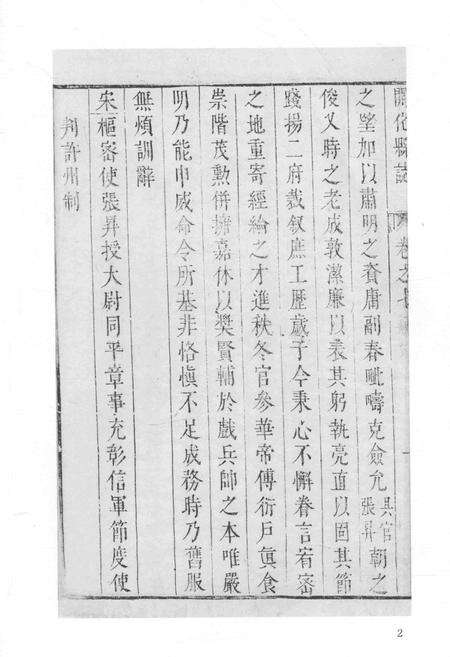 開化縣誌 卷之七
之望加以肅明之資庸副春毗疇克僉允具官張昇朝之
俊乂時之老成敦潔廉以表其躬執亮直以固其節
踐揚二府裁叙庶工歷歲于今秉心不懈眷言宥密
之地重寄經綸之才進秩冬官參華帝傅衍戶眞食
崇階茂勲併擁嘉休以奬賢輔於戲兵帥之本唯嚴
明乃能申威命令所基非恪慎不足成務時乃舊服
無煩訓辭
宋樞密使張昇授大尉同平章事充彰信軍節度使
判許州制
2